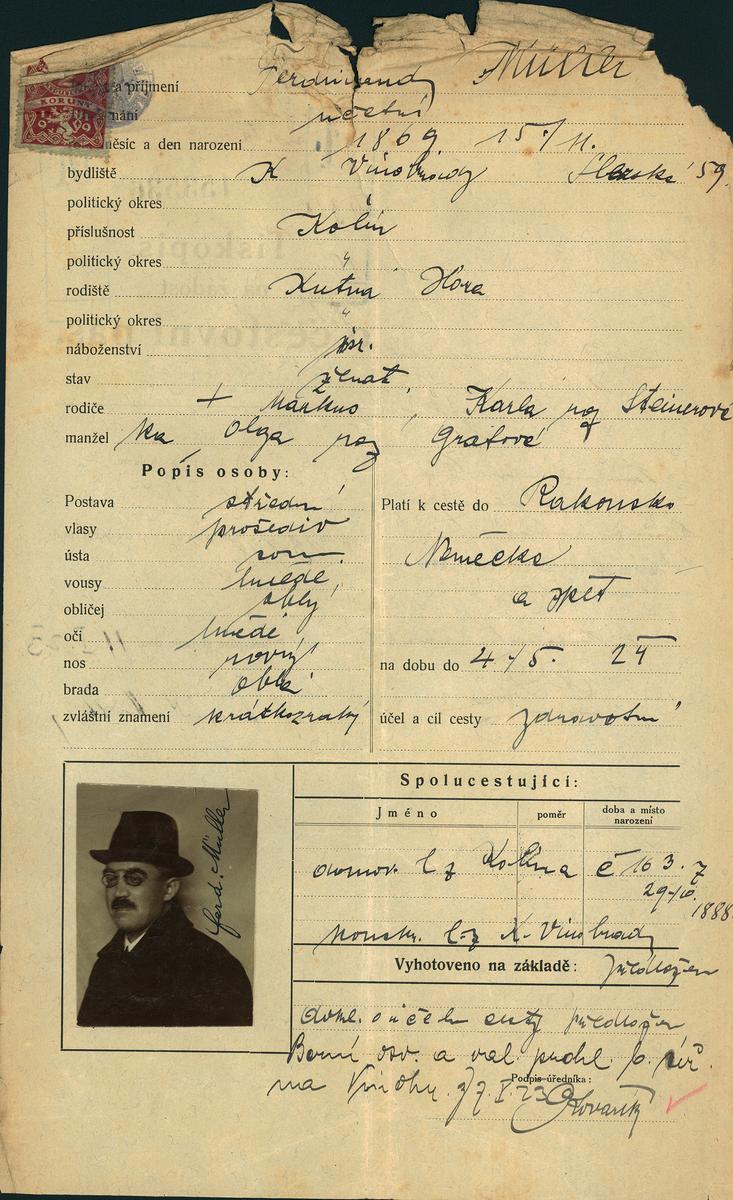 a příjmení Ferdinand Müller
účetní
měsíc a den narození 1869 15/11.
bydliště K Vinohrady Slezská 59
politický okres
příslušnost Kolín
politický okres "
rodiště Kutná Hora
politický okres "
náboženství isr.
stav ženat
rodiče + Markus, Karla roz Steinerové
manžel ka Olga roz Grafové
Popis osoby:
Postava střední
vlasy prošediv
ústa soum.
vousy hnědé
obličej oblý
oči hnědé
nos rovný
brada oblá
zvláštní znamení krátkozraký
Platí k cestě do Rakouska
Německa
a zpět
na dobu do 4/5. 24
účel a cíl cesty zdravotní
KORUNY
ferd. Müller
Spolucestující:
Jméno poměr doba a místo narození
domov. l z Kolína č 163. z
29/10. 1888
l-z K-Vinohrady
Vyhotoveno na základě: předložen
dokl. o účelu cesty předložen
Berní osv. a val. prohl. b.
na Vinohr. 7.I.23
Podpis úředníka: